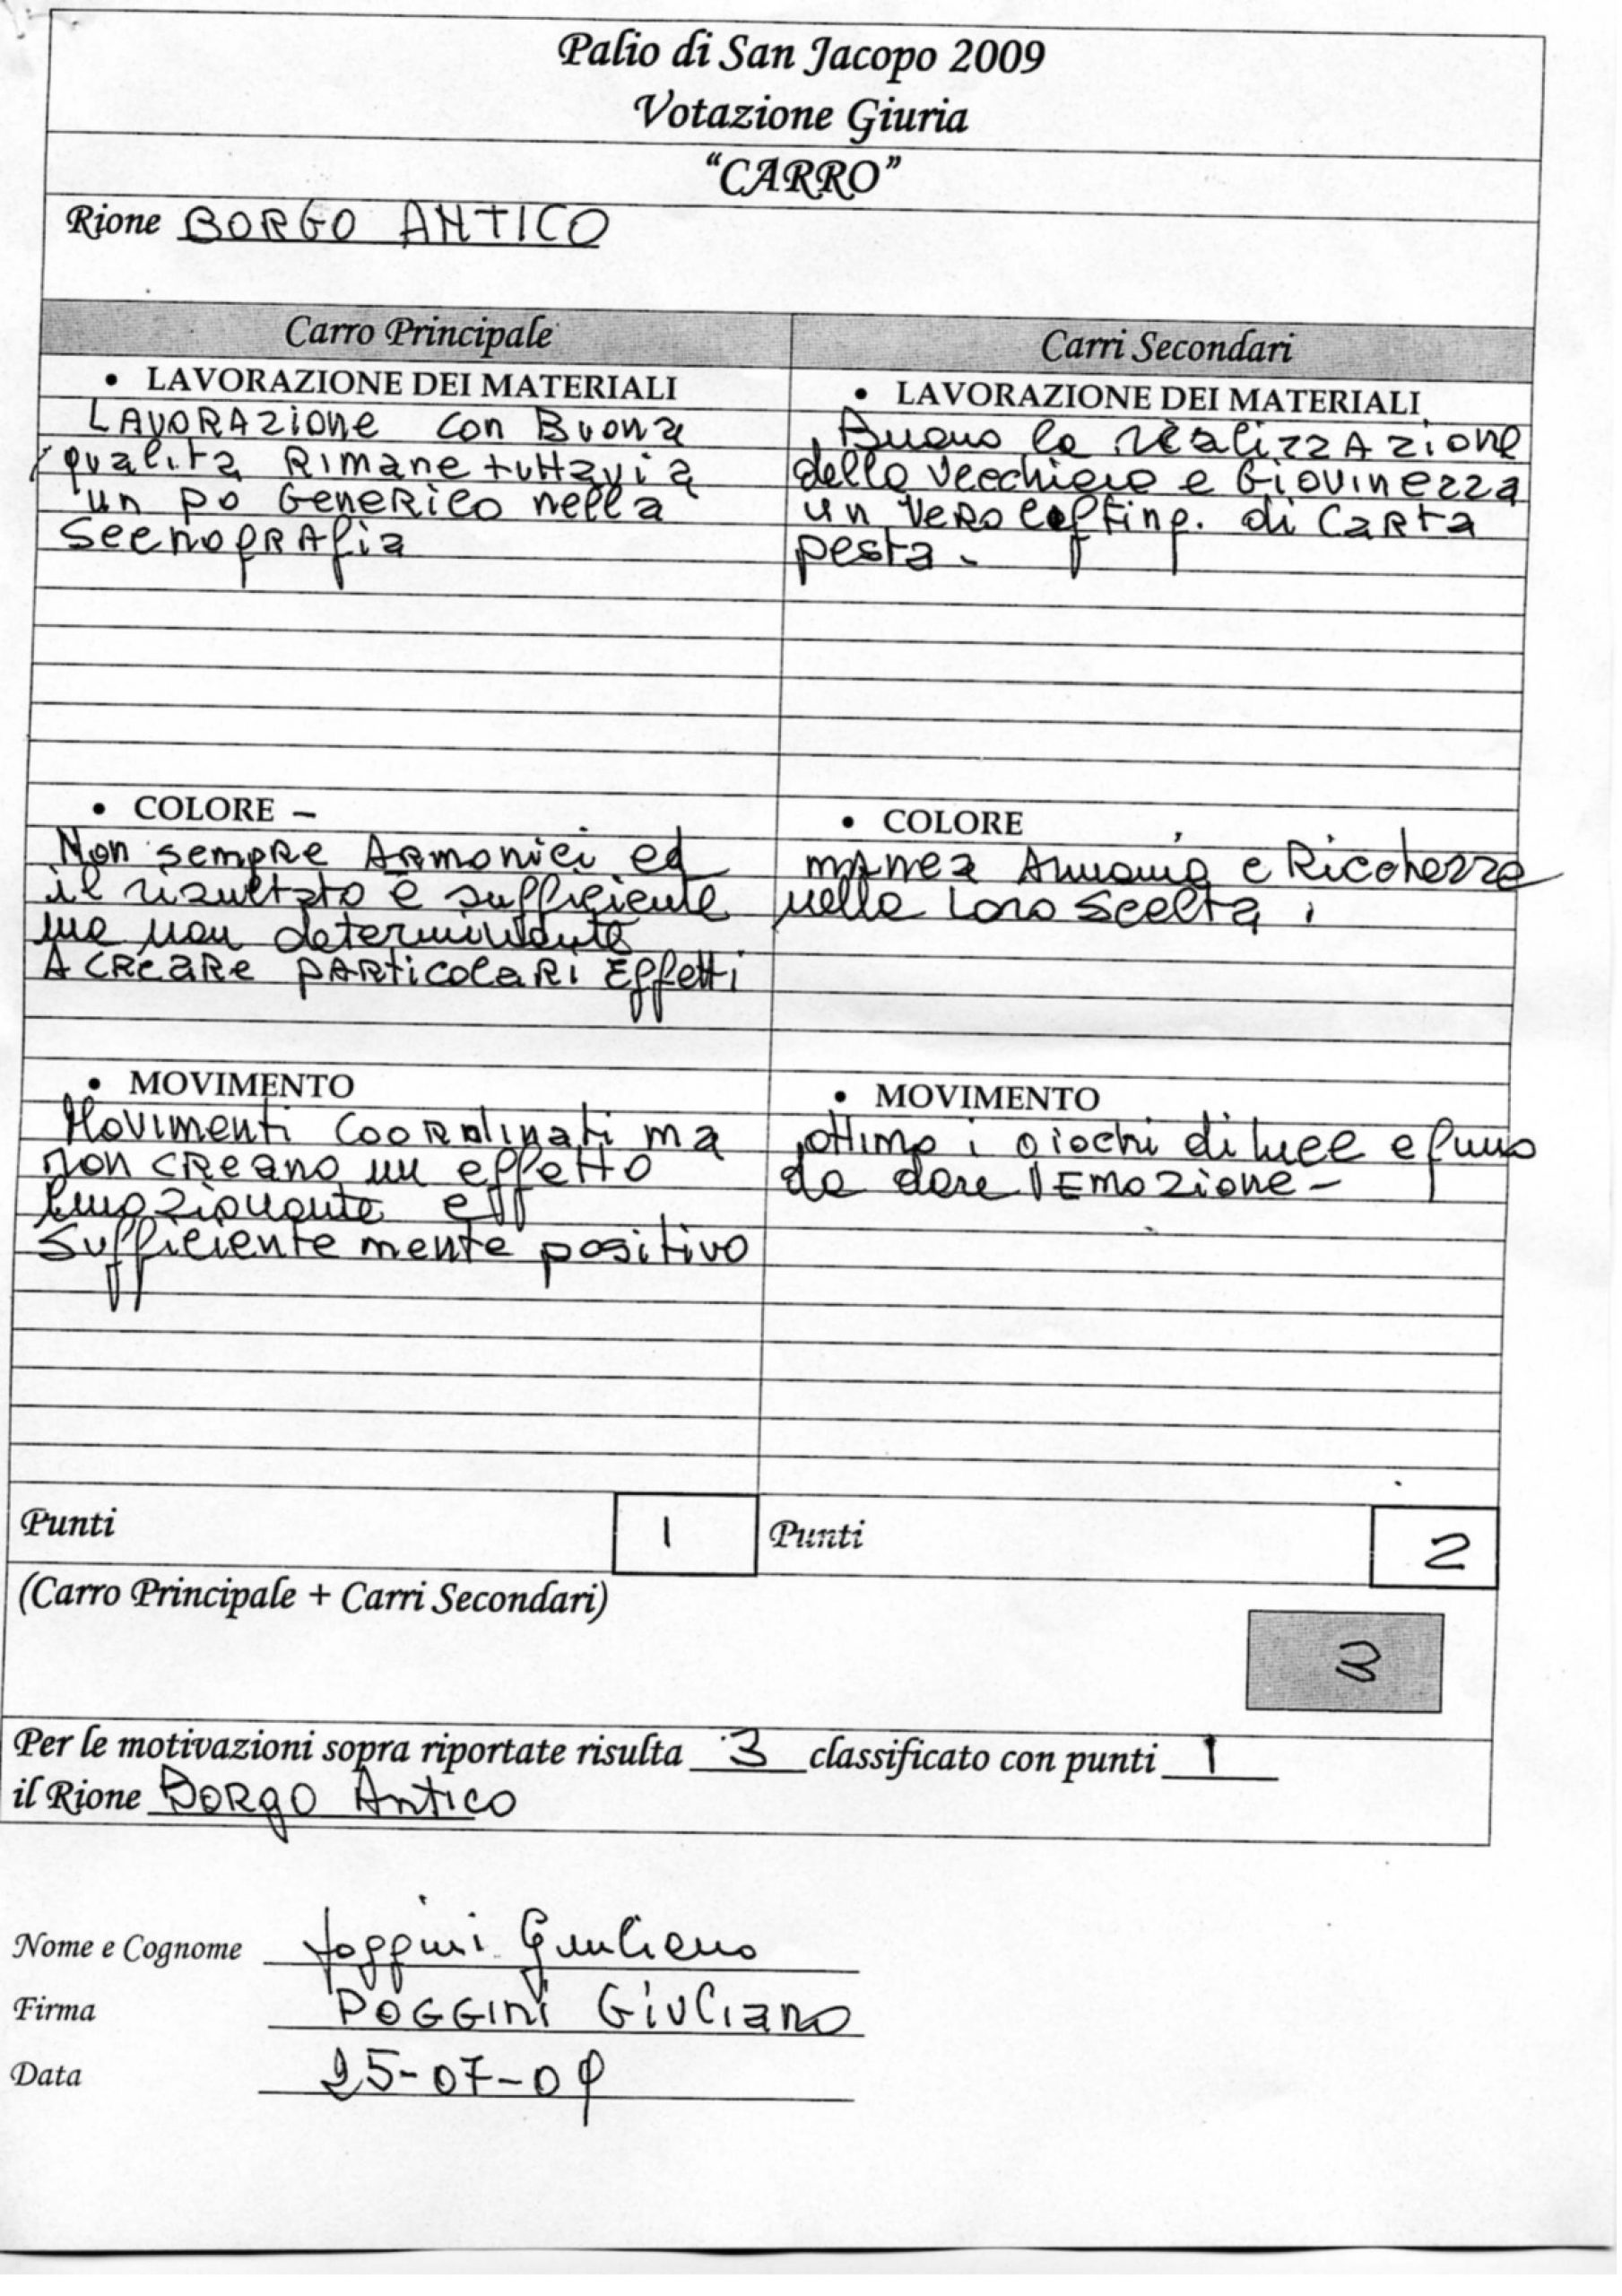 Palio di San Jacopo 2009
Votazione Giuria
“CARRO”
Rione BORGO ANTICO
Carro Principale
• LAVORAZIONE DEI MATERIALI
LAVORAZIONE con Buona
qualità Rimane tuttavia
un po Generico nella
scenografia
• COLORE –
Non sempre Armonici ed
il risultato è sufficiente
ma non determinante
A CREARE PARTICOLARI Effetti
• MOVIMENTO
Movimenti Coordinati ma
non CREANO un effetto
Emozionante e
Sufficientemente positivo
Punti 1
Carri Secondari
• LAVORAZIONE DEI MATERIALI
Buono la realizzAzione
della Vecchiaia e Giovinezza
un Vero di CARTA
pesta -
• COLORE
manca Armonia e Ricchezza
nella Loro Scelta
• MOVIMENTO
ottimo i giochi di luce e fumo
da dare Emozione -
Punti 2
(Carro Principale + Carri Secondari)
3
Per le motivazioni sopra riportate risulta 3 classificato con punti 1
il Rione Borgo Antico
Nome e Cognome Poggini Giuliano
Firma POGGINI GIULIANO
Data 25-07-09